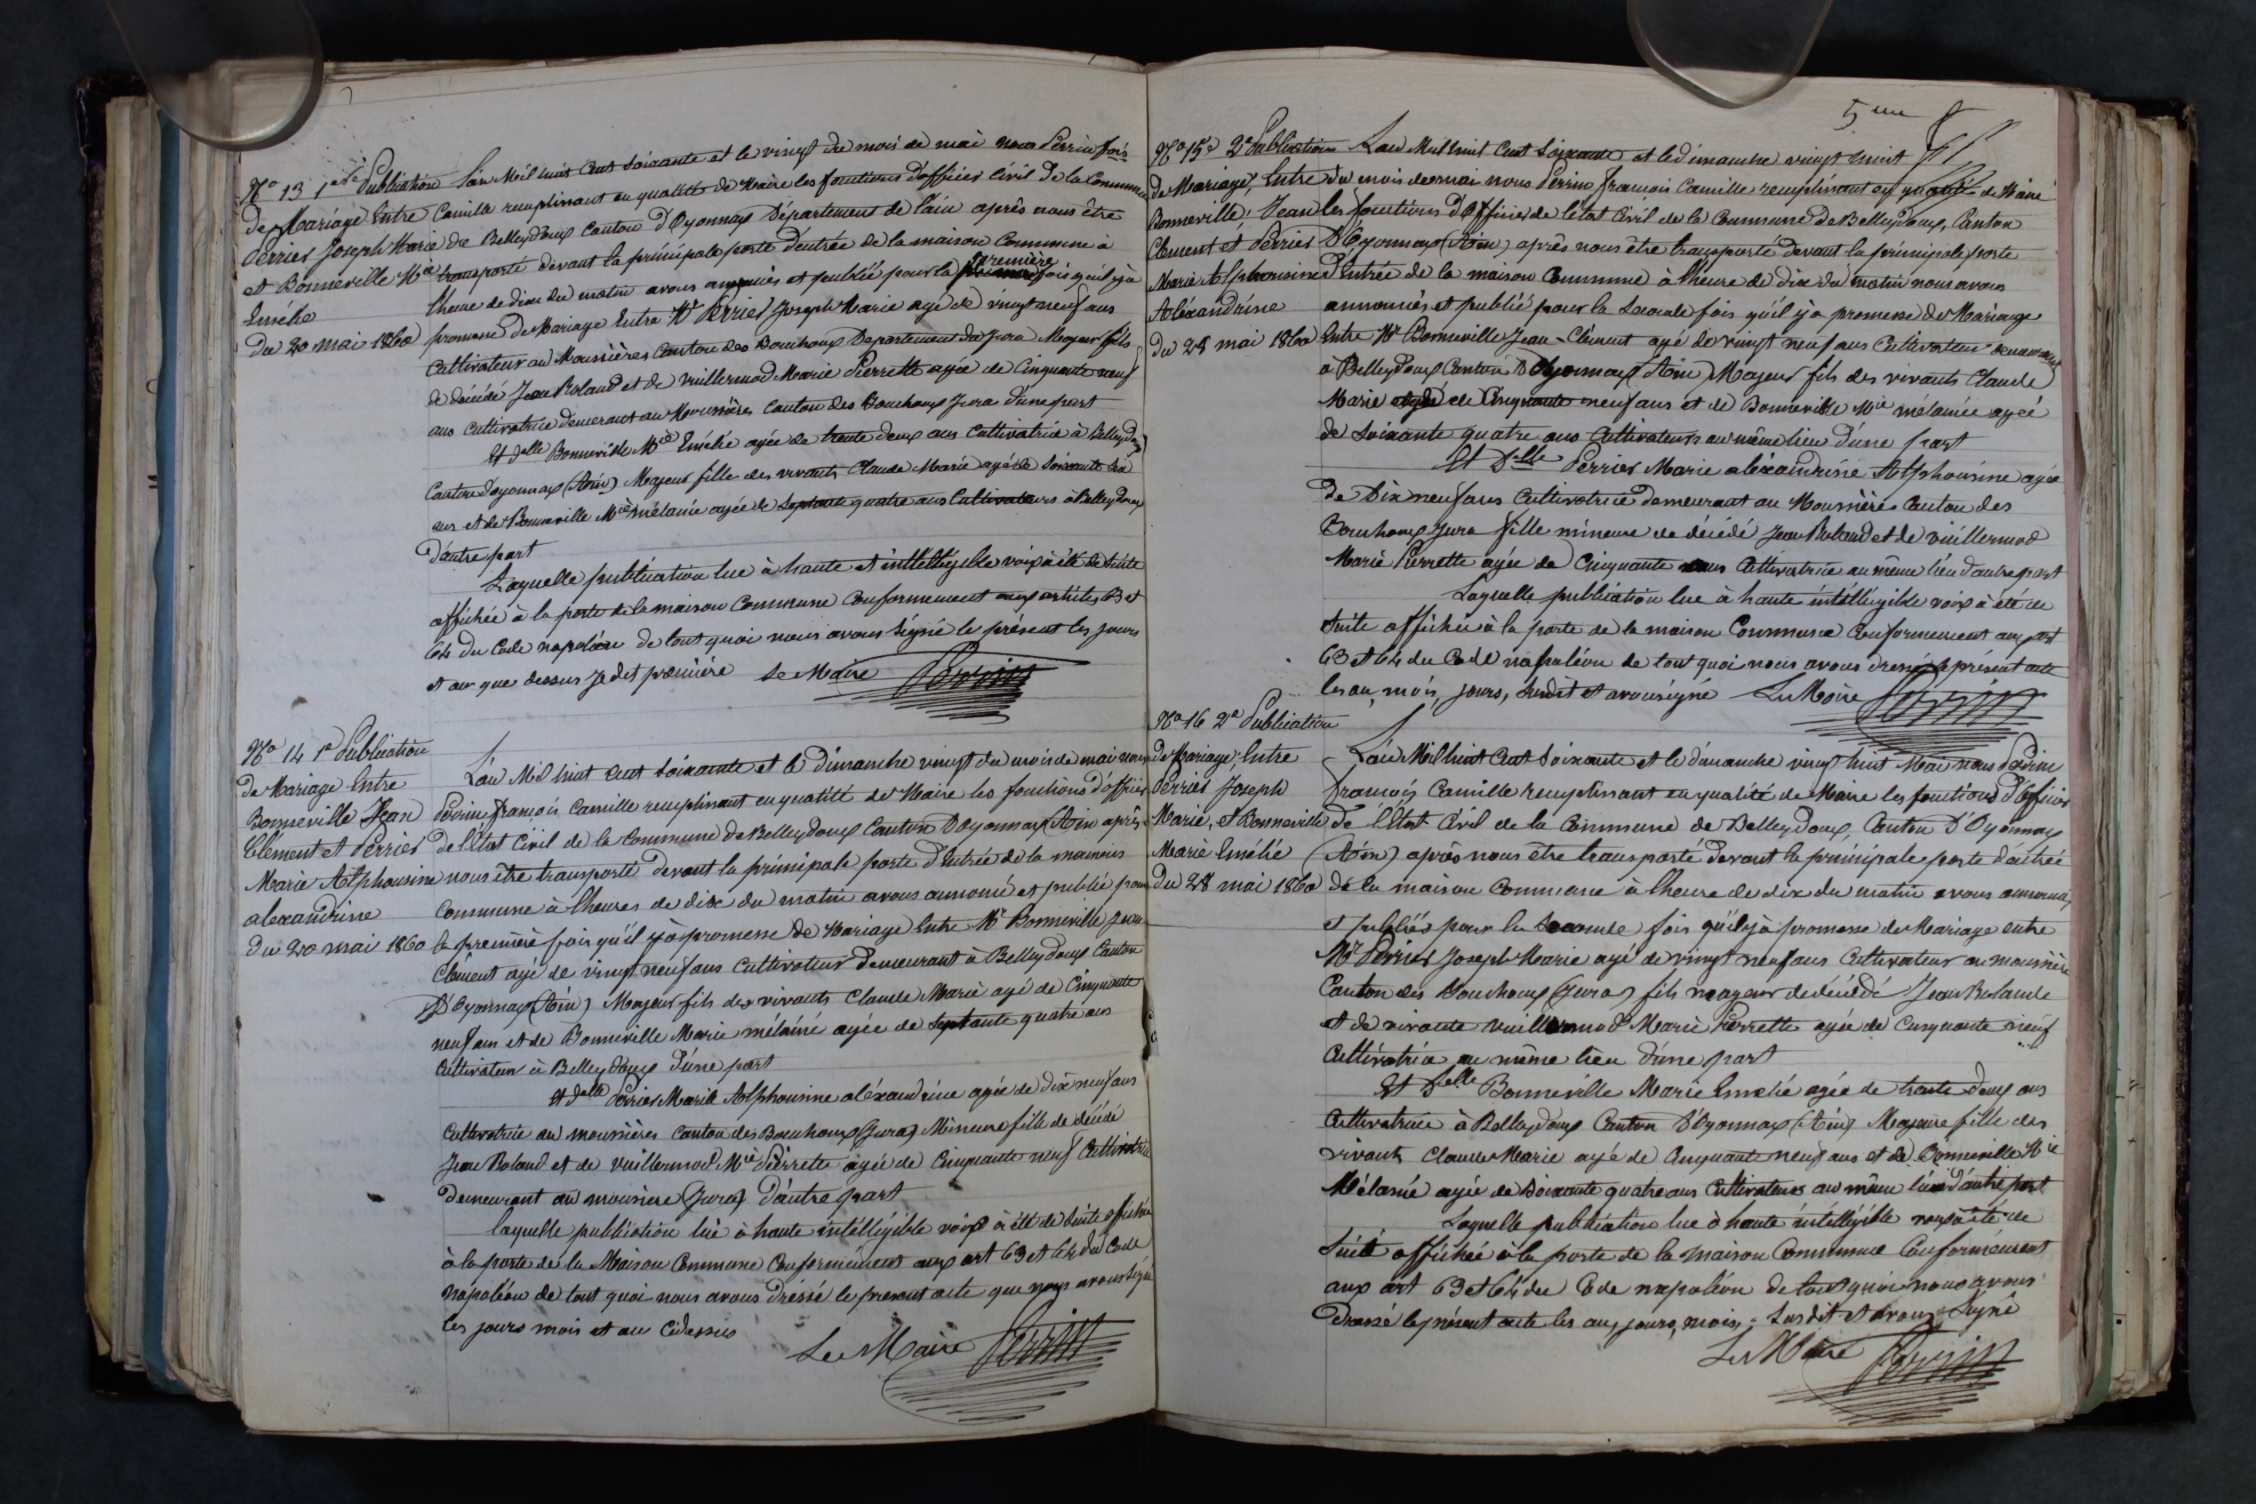 No 13 1ere Publication
de Mariage Entre
Perrier Joseph Marie
et Bonneville Mie
Emélie
Du 20 mai 1860
L'an Mil huit Cent Soixante et le vingt du mois de mai nous Perrin fois
Camille remplissant en qualité de Maire les fonctions d'officier Civil de la Commune
de Belleydoux Canton d'Oyonnax Département de l'ain après nous être
transporté devant la principale porte d'entrée de la maison Commune à
l'heure de dix du matin avons annoncés et publié pour la première fois qu'il y à
promesse de Mariage Entre Mr Perrier Joseph Marie agé de vingt neuf ans
Cultivateur au Moussières Canton des Bouchoux Departement du Jura Mageur fils
de décédé Jean Roland et de Vuillermod Marie Pierrette agée de Cinquante neuf
ans cultivatrice demeurant au Moussières canton des Bouchoux Jura d'une part
Et delle Bonneville Mie Emélie agée de trente deux ans Cultivatrice à Belleydoux
Canton d'oyonnax (Ain) Mageur fille des vivants Claude Marie agé de soixante
ans et de Bonneville Mie mélanie agée de septante quatre ans Cultivateurs à Belleydoux
d'autre part
Laquelle publication lue à haute et intelléigible voix à été de suite
affichée à la porte de la maison Commune Conformement aux articles 63 et
64 du Code napoléon de tout quoi nous avons signé le présent les jours
et an que dessus Je dit première Le Maire Perrin
No 14 1e Publication
de Mariage Entre
Bonneville Jean
Clement et Perrier
Marie Alphonsine
alexandrine
Du 20 mai 1860
L'an Mil huit cent soixante et le Dimanche vingt du mois de mai nous
Perrin françois Camille remplissant en qualité de Maire les fonctions d'officier
de l'Etat Civil de la Commune de Belleydoux Canton D'Oyonnax (Ain après
nous être transporté devant la principale porte d'Entrée de la maison
Commune à l'heures de dix du matin avons annoncé et publié pour
la première fois qu'il y à promesse de Mariage Entre Mr Bonneville Jean
Clément agé de vingt neuf ans cultivateur demeurant à Belleydoux Canton
D'Oyonnax (Ain) Mageur fils des vivants Claude Marie agé de Cinquante
neuf ans et de Bonneville Marie mélainé agée de septante quatre ans
Cultivateur à Belleydoux d'une part
et delle Perrier Marie Alphonsine aléxandrine agée de Dix neuf ans
Cultivatrice au moussières Canton des Bouchoux (Jura) Mineure fille de décédé
Jean Roland et de Vuillermod Mie Pierrette agée de Cinquante neuf Cultivatrice
demeurant au moussiere (Jura) d'autre part
laquelle publication lue à haute intélligible voix à été de suite affichée
à la porte de la Maison Commune Conformément aux art 63 et 64 du Code
napoléon de tout quoi nous avons dréssé le present acte que nous avons signé
les jours mois et an cidessus
Le Maire Perrin
5me
No 15e 2e Publication
de Mariage, Entre
Bonneville, Jean
Clement et Perrier
Marie Alphonsine
Aléxandrine
Du 28 mai 1860
L'an Mil huit Cent Soixante et le dimanche vingt huit
du mois de mai nous Perrin françois Camille remplissant en qualité de Maire
les fonctions d'Officier de l'état Civil de la Commune de Belleydoux, Canton
D'Oyonnax (Ain) après nous être transporté devant la principale porte
d'Entrée de la maison Commune à l'heure de dix du matin nous avons
annonciés et publié pour la Seconde fois qu'il y à promesse de Mariage
Entre Mr Bonneville Jean-Clément agé de vingt neuf ans Cultivateur demeurant
à Belleydoux Canton D'Oyonnax (Ain) Mageur fils des vivants Claude
Marie agé de Cinquante neuf ans et de Bonneville Mie mélanie ageé
de Soixante quatre ans Cultivateurs au même lieu d'une part
Et Delle Perrier Marie aléxandrine Alphonsine agée
de Dix neuf ans Cultivatrice demeurant au Moussière Canton des
Bouchoux Jura fille mineure de décédé Jean Roland et de Vuillermod
Marie Pierrette agée de Cinquante ans Cultivatrice au même lieu d'autre part
Laquelle publication lue à haute intélligible voix à été de
suite affichée à la porte de la maison Commune Conformement aux art
63 et 64 du Code napoléon de tout quoi nous avons dressé le présent acte
les an, mois, jours, susdit et avons signé Le Maire Perrin
No 16 2e Publication
de Mariage, Entre
Perrier Joseph
Marie, et Bonneville
Marie Emélie
Du 28 mai 1860
L'an Mil huit Cent Soixante et le dimanche vingt huit Mai nous Perrin
françois Camille remplissant en qualité de Maire les fonctions d'officier
de l'Etat Civil de la Commune de Belleydoux, Canton D'Oyonnax
(Ain) après nous être transporté devant la principale porte d'entrée
de la maison commune à l'heure de dix du matin avons annoncé,
et publiés pour la Seconde fois qu'il y à promesse de Mariage entre
Mr Perrier Joseph Marie agé de vingt neuf ans Cultivateur au moussière
Canton des Bouchoux (Jura) fils mageur de décédé Jean Rolande
et de vivante Vuillermod Marie Pierrette agée de Cinquante neuf
Cultivatrice au même lieu d'une part
Et Delle Bonneville Marie Emélié agée de trente deux ans
Cultivatrice à Belleydoux Canton D'Oyonnax (Ain) Mageure fille des
vivants Claude Marie agé de Cinquante neuf ans et de Bonneville Mie
Mélanie agée de Soixante quatre ans Cultivateurs au même lieu d'autre part
Laquelle publication lue à haute intelligible voix à été de
Suite affichée à la porte de la maison Commune Conformément
aux art 63 et 64 du Code napoléon de tout quoi nous avons
Dressé le présent acte les an, jours, mois, susdit et avons Signé
Le Maire Perrin